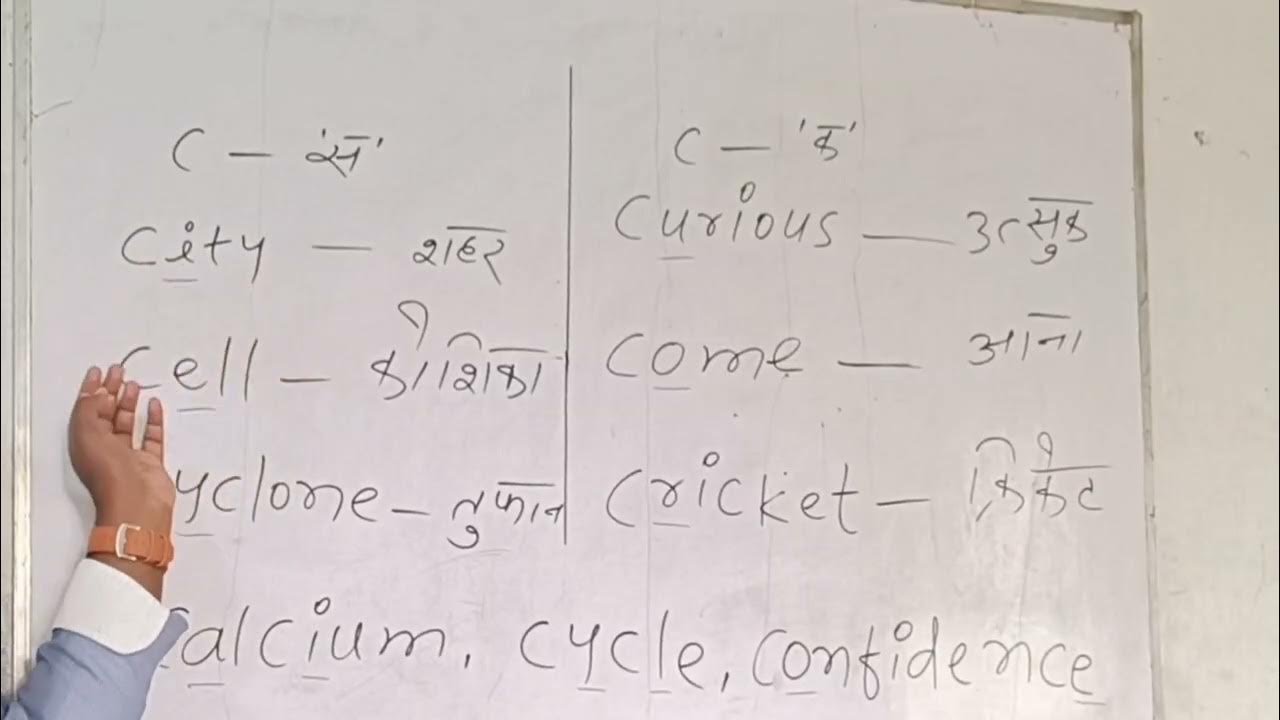 C – 'स'
City – शहर
Cell – कोशिका
yclone – तुफान
C – 'क'
Curious – उत्सुक
Come – आना
Cricket – क्रिकेट
Calcium, Cycle, Confidence